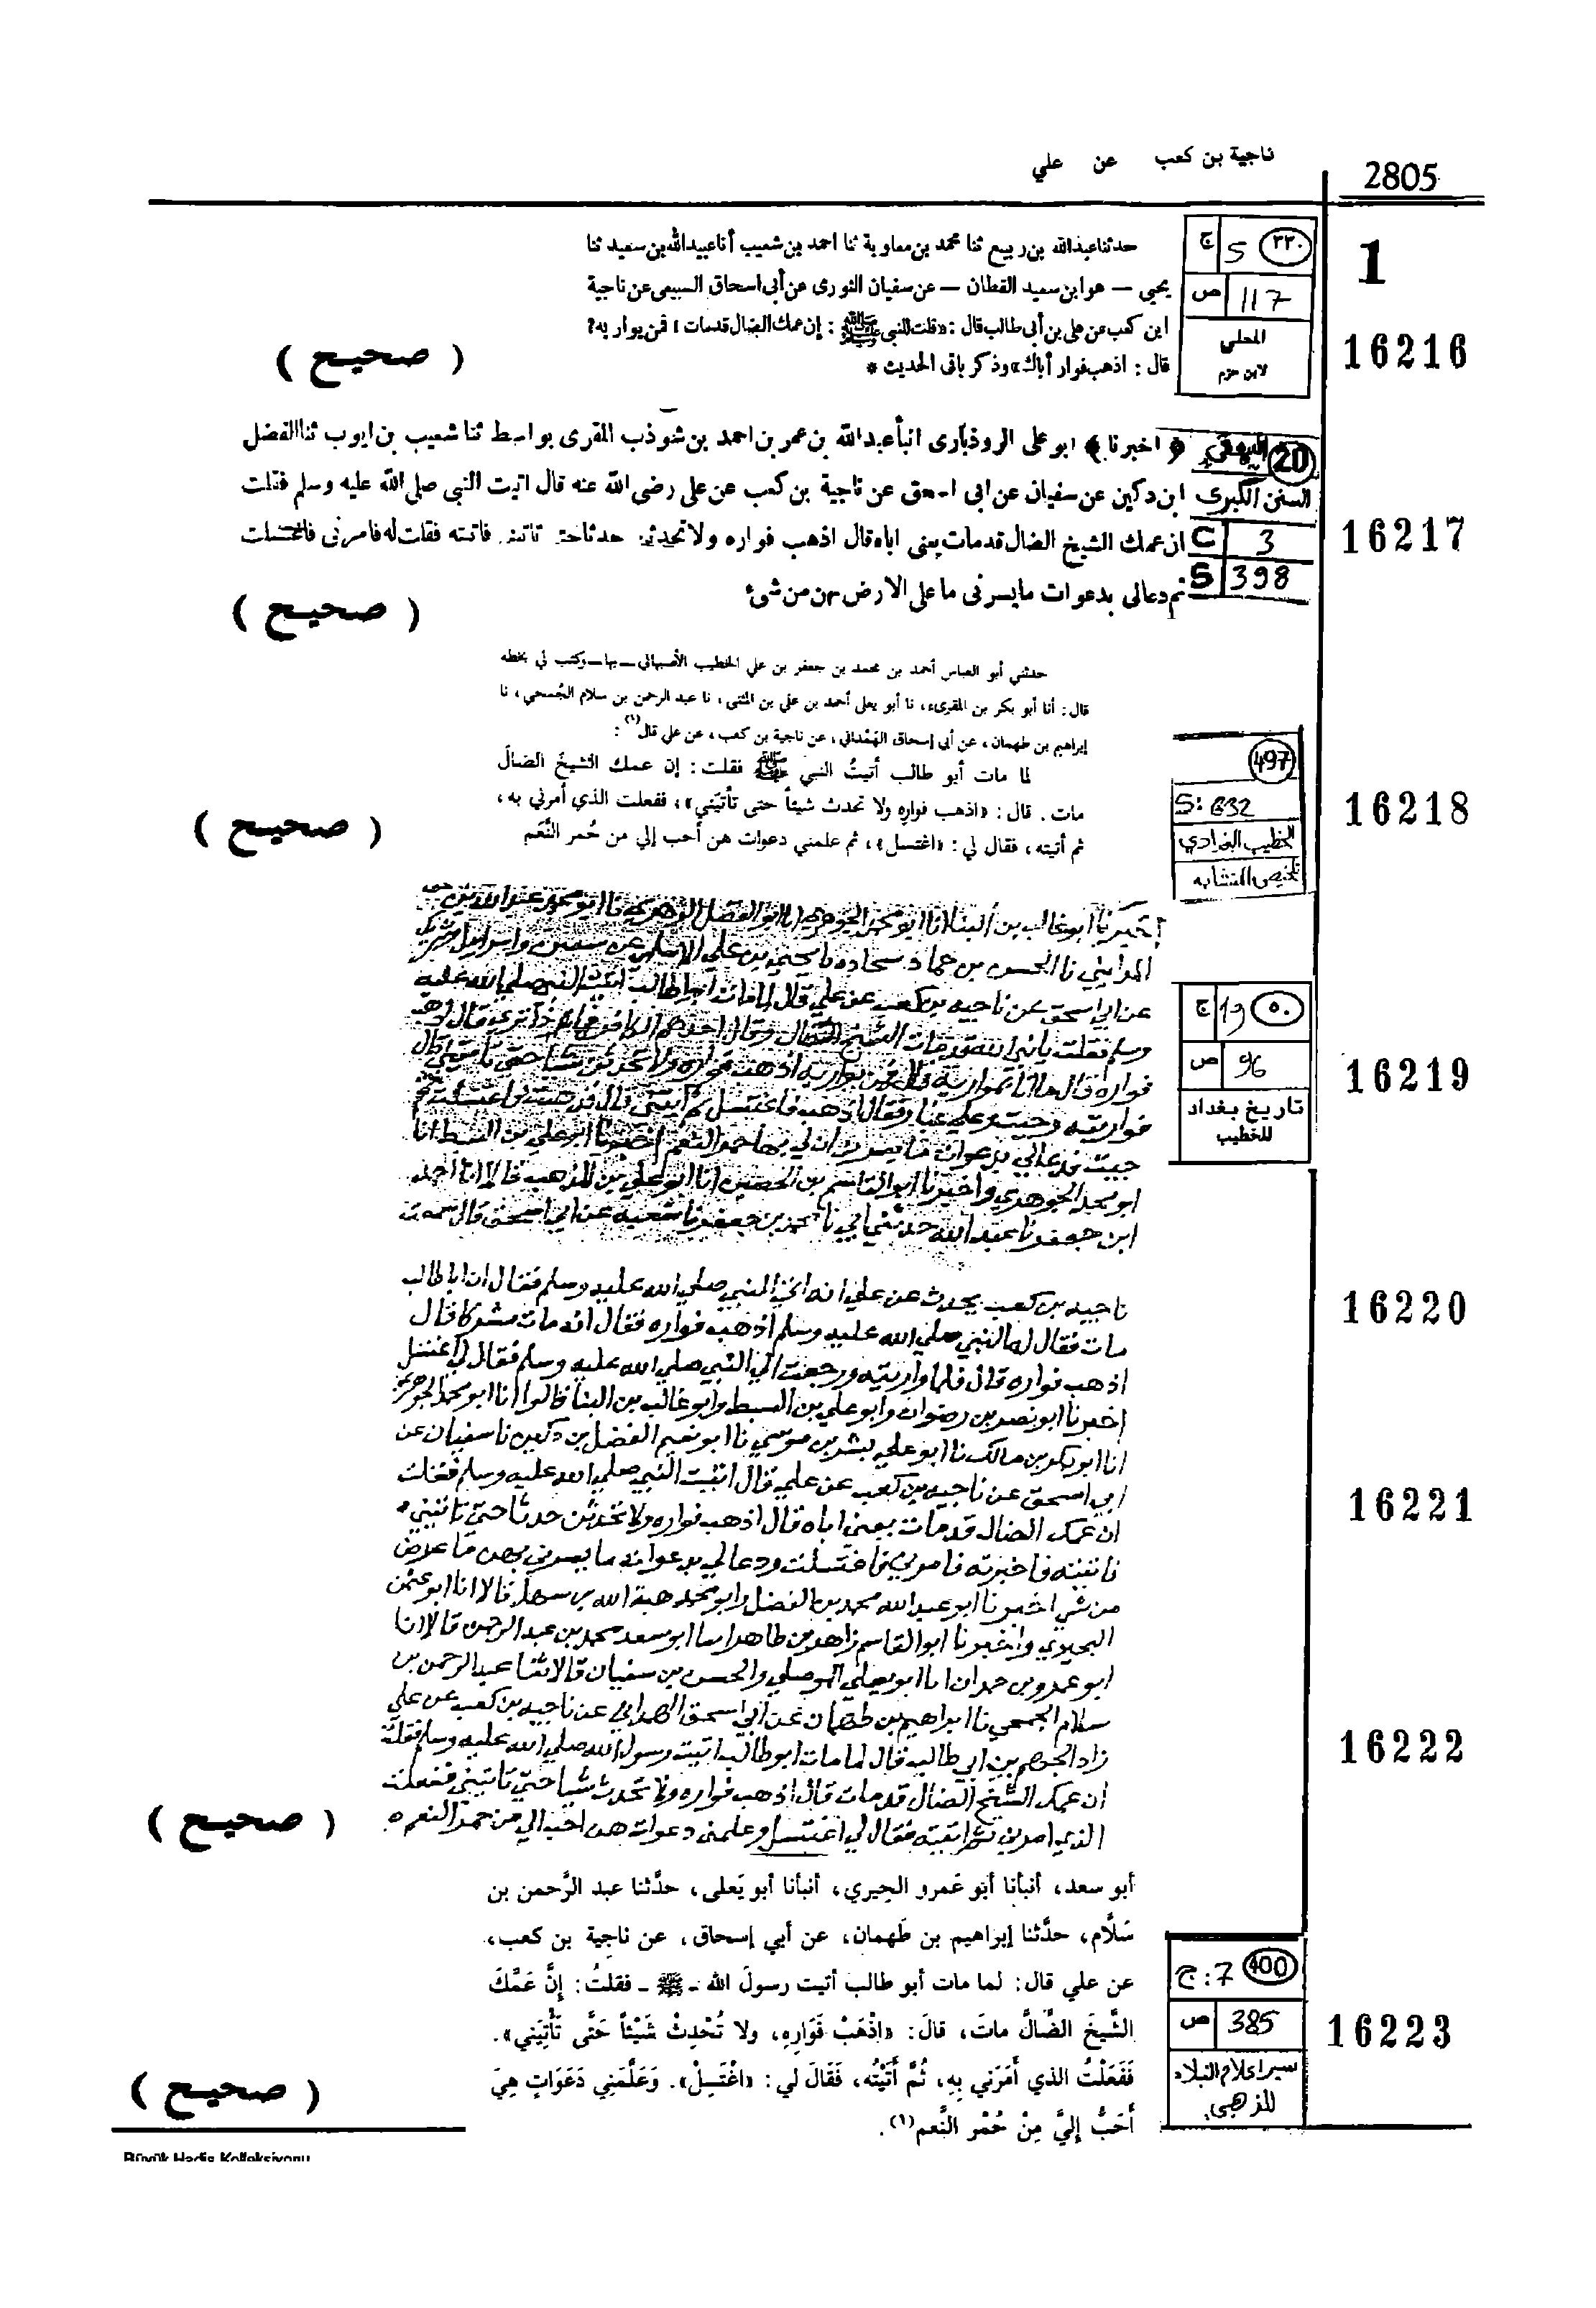 ناجية بن كعب عن علي
2805
1
٣٣٠ 5 ج
117 ص
المحلى
لابن حزم
16216
حدثنا عبدالله بن ربيع ثنا محمد بن معاوية ثنا احمد بن شعيب أنا عبيدالله بن سعيد ثنا
يحيى — هو ابن سعيد القطان — عن سفيان الثورى عن أبى اسحاق السبيعى عن ناجية
ابن كعب عن على بن أبى طالب قال : «قلت للنبى ﷺ : إن عمك الضال قدمات ؛ فمن يواريه؟
قال : اذهب فوار أباك» وذكر باقى الحديث *
( صحيح )
20 البيهقي
السنن الكبرى
C 3
S 398
16217
﴿ اخبرنا ﴾ ابو على الروذبارى انبأ عبدالله بن عمر بن احمد بن شوذب المقرى بواسط ثنا شعيب بن ايوب ثنا الفضل
ابن دكين عن سفيان عن ابى اسحق عن ناجية بن كعب عن على رضى الله عنه قال اتيت النبي صلى الله عليه وسلم فقلت
ان عمك الشيخ الضال قدمات يعنى اباه قال اذهب فواره ولا تحدثن حدثا حتى تأتينى فاتيته فقلت له فامرنى فاغتسلت
ثم دعالى بدعوات مايسرنى ما على الارض بهن من شئ
( صحيح )
497
S: 632
الخطيب البغدادي
تلخيص المتشابه
16218
حدثني أبو العباس أحمد بن محمد بن جعفر بن علي الخطيب الأصبهاني — بها — وكتب لي بخطه
قال: أنا أبو بكر بن المقرىء، نا أبو يعلى أحمد بن علي بن المثنى، نا عبد الرحمن بن سلام الجُمحي، نا
إبراهيم بن طهمان، عن أبي إسحاق الهَمْداني، عن ناجية بن كعب، عن علي قال(١) :
لما مات أبو طالب أتيتُ النبي ﷺ فقلت: إن عمك الشيخَ الضالَّ
مات. قال: «اذهب فوارِه ولا تحدث شيئاً حتى تأتيَني»، ففعلت الذي أمرني به،
ثم أتيته، فقال لي: «اغتسل»، ثم علمني دعوات هن أحب إلي من حُمر النَّعَم
( صحيح )
٥٠ 19 ج
96 ص
تاريخ بغداد
للخطيب
16219
اخبرنا ابو غالب بن البنا انا ابو محمد الجوهري انا ابو الفضل الزهري نا ابو محمد عبد الله بن
المدايني نا الحسن بن حماد سجاده نا يحيى بن علي الاسلمي عن سفين واسراييل وشريك
عن ابي اسحق عن ناجيه بن كعب عن علي قال لما مات ابو طالب اتيت النبي صلي الله عليه
وسلم فقلت يا نبي الله قد مات الشيخ الضال وقال احدهم الكافر فما ذا تري قال اذهب
فواره قال ما انا بمواريه قال فمن يواريه اذهب فواره ولا تحدثن شيا حتى تاتيني قال
فواريته وجيت وعلي غبار فقال اذهب فاغتسل ثم ايتني قال فذهبت فاغتسلت ثم
جيت فدعا لي بدعوات ما يسرني ان لي بها حمر النعم اخبرنا ابو علي بن السبط انا
ابو محمد الجوهري واخبرنا ابو القاسم بن الحصين انا ابو علي بن المذهب قالا انا احمد
ابن جعفر نا عبد الله حدثني ابي نا محمد بن جعفر نا شعبه عن ابي اسحق قال سمعت
16220
ناجيه بن كعب يحدث عن علي انه اتى النبي صلي الله عليه وسلم فقال ان ابا طالب
مات فقال له النبي صلي الله عليه وسلم اذهب فواره فقال انه مات مشركا قال
اذهب فواره قال فلما واريته ورجعت الي النبي صلي الله عليه وسلم فقال لي اغتسل
اخبرنا ابو نصر بن رضوان وابو علي بن السبط وابو غالب بن البنا قالوا انا ابو محمد الجوهري
انا ابو بكر بن مالك نا ابو علي بشر بن موسي نا ابو نعيم الفضل بن دكين نا سفيان عن
16221
ابي اسحق عن ناجيه بن كعب عن علي قال اتيت النبي صلي الله عليه وسلم فقلت
ان عمك الضال قد مات يعني اباه قال اذهب فواره ولا تحدثن حدثا حتى تاتيني
فاتيته فاخبرته فامرني فاغتسلت ودعا لي بدعوات ما يسرني بهن ما عرض
من شي اخبرنا ابو عبد الله محمد بن الفضل وابو محمد هبة الله بن سهل قالا انا ابو عثمن
البحيري واخبرنا ابو القاسم زاهر بن طاهر انا ابو سعد محمد بن عبد الرحمن قالا انا
ابو عمرو بن حمدان انا ابو يعلي الموصلي والحسن بن سفيان قالا ثنا عبد الرحمن بن
16222
سلام الجمحي نا ابراهيم بن طهمان عن ابي اسحق الهمداني عن ناجيه بن كعب عن علي
زاد الجهم بن ابي طالب قال لما مات ابو طالب اتيت رسول الله صلي الله عليه وسلم فقلت
ان عمك الشيخ الضال قد مات قال اذهب فواره ولا تحدث شيا حتى تاتيني ففعلت
الذي امرني ثم اتيته فقال لي اغتسل وعلمني دعوات هن احب الي من حمر النعم
( صحيح )
400 7 : ج
385 ص
سير اعلام النبلاء
للذهبي
16223
أبو سعد، أنبأنا أبو عَمرو الحِيري، أنبأنا أبو يَعلى، حدَّثنا عبد الرَّحمن بن
سَلَّام، حدَّثنا إبراهيم بن طَهمان، عن أبي إسحاق، عن ناجية بن كعب،
عن علي قال: لما مات أبو طالب أتيت رسولَ الله - ﷺ - فقلتُ: إنَّ عَمَّكَ
الشَّيخَ الضَّالَّ ماتَ، قالَ: «اذْهَبْ فَوَارِهِ، ولا تُحْدِثْ شَيْئاً حَتَّى تَأْتِيَني».
فَفَعَلْتُ الذي أَمَرَني بِهِ، ثُمَّ أَتَيْتُه، فَقَالَ لي: «اغْتَسِلْ». وَعَلَّمَنِي دَعَوَاتٍ هِيَ
أَحَبُّ إليَّ مِنْ حُمْرِ النَّعم(١).
( صحيح )
Büyük Hadis Kolleksiyonu